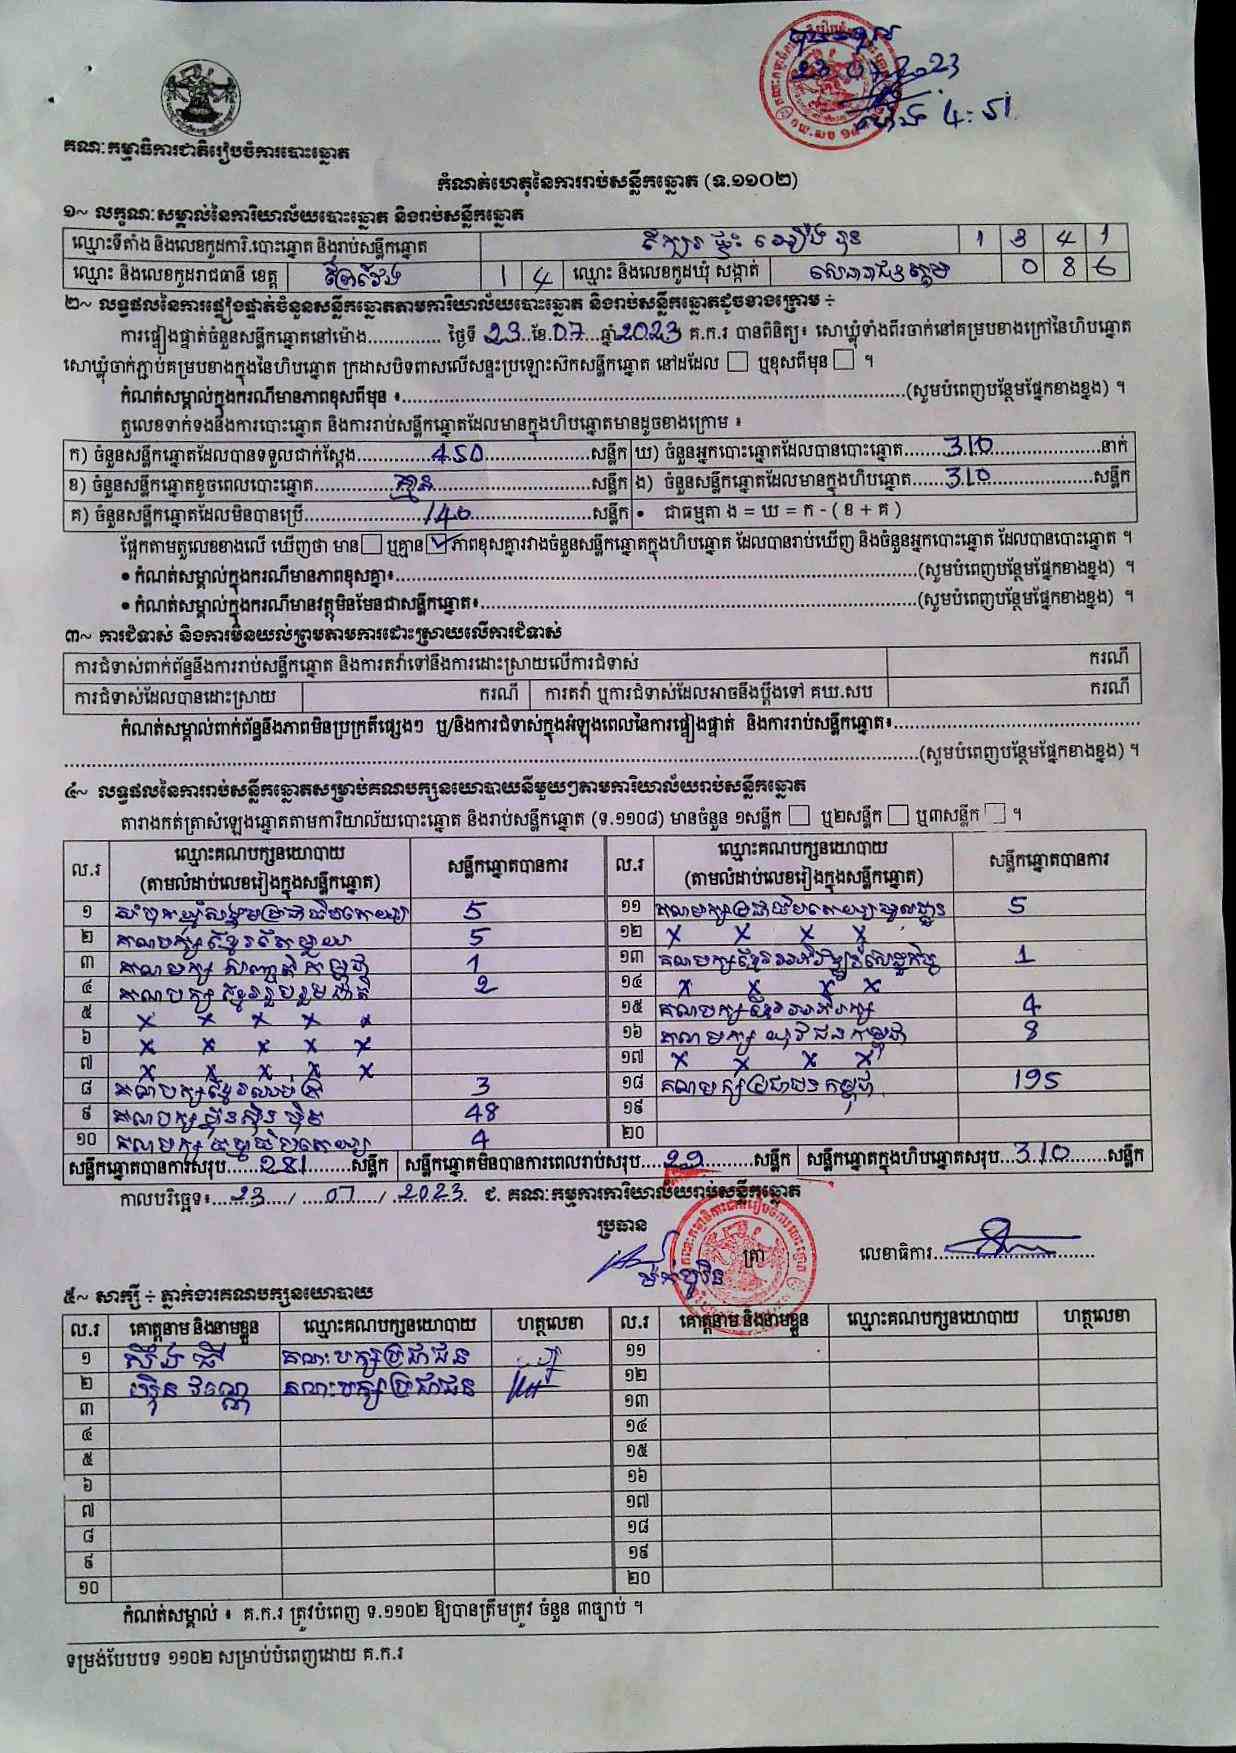 23 07 2023
4:51
គណៈកម្មាធិការជាតិរៀបចំការបោះឆ្នោត
កំណត់ហេតុនៃការរាប់សន្លឹកឆ្នោត (ទ.១១០២)
១~ លក្ខណៈសម្គាល់នៃការិយាល័យបោះឆ្នោត និងរាប់សន្លឹកឆ្នោត
ឈ្មោះទីតាំង និងលេខកូដការិ.បោះឆ្នោត និងរាប់សន្លឹកឆ្នោត 1 3 4 1
ឈ្មោះ និងលេខកូដរាជធានី ខេត្ត ព្រៃវែង 1 4 ឈ្មោះ និងលេខកូដឃុំ សង្កាត់ 0 8 6
២~ លទ្ធផលនៃការផ្ទៀងផ្ទាត់ចំនួនសន្លឹកឆ្នោតតាមការិយាល័យបោះឆ្នោត និងរាប់សន្លឹកឆ្នោតដូចខាងក្រោម ÷
ការផ្ទៀងផ្ទាត់ចំនួនសន្លឹកឆ្នោតនៅម៉ោង.............. ថ្ងៃទី 23 ខែ 07 ឆ្នាំ 2023 គ.ក.រ បានពិនិត្យ៖ សោឃ្លុំទាំងពីរចាក់នៅគម្របខាងក្រៅនៃហិបឆ្នោត
សោឃ្លុំចាក់ភ្ជាប់គម្របខាងក្នុងនៃហិបឆ្នោត ក្រដាសបិទពាសលើសន្ទះប្រឡោះស៊កសន្លឹកឆ្នោត នៅដដែល ☐ ឬខុសពីមុន ☐ ។
កំណត់សម្គាល់ក្នុងករណីមានភាពខុសពីមុន ៖..............(សូមបំពេញបន្ថែមផ្នែកខាងខ្នង) ។
តួលេខទាក់ទងនឹងការបោះឆ្នោត និងការរាប់សន្លឹកឆ្នោតដែលមានក្នុងហិបឆ្នោតមានដូចខាងក្រោម ៖
ក) ចំនួនសន្លឹកឆ្នោតដែលបានទទួលជាក់ស្តែង 450 សន្លឹក ឃ) ចំនួនអ្នកបោះឆ្នោតដែលបានបោះឆ្នោត 310 នាក់
ខ) ចំនួនសន្លឹកឆ្នោតខូចពេលបោះឆ្នោត គ្មាន សន្លឹក ង) ចំនួនសន្លឹកឆ្នោតដែលមានក្នុងហិបឆ្នោត 310 សន្លឹក
គ) ចំនួនសន្លឹកឆ្នោតដែលមិនបានប្រើ 140 សន្លឹក • ជាធម្មតា ង = ឃ = ក - ( ខ + គ )
ផ្អែកតាមតួលេខខាងលើ ឃើញថា មាន ☐ ឬគ្មាន ☑ ភាពខុសគ្នារវាងចំនួនសន្លឹកឆ្នោតក្នុងហិបឆ្នោត ដែលបានរាប់ឃើញ និងចំនួនអ្នកបោះឆ្នោត ដែលបានបោះឆ្នោត ។
• កំណត់សម្គាល់ក្នុងករណីមានភាពខុសគ្នា៖..............(សូមបំពេញបន្ថែមផ្នែកខាងខ្នង) ។
• កំណត់សម្គាល់ក្នុងករណីមានវត្ថុមិនមែនជាសន្លឹកឆ្នោត៖..............(សូមបំពេញបន្ថែមផ្នែកខាងខ្នង) ។
៣~ ការជំទាស់ និងការមិនយល់ព្រមតាមការដោះស្រាយលើការជំទាស់
ការជំទាស់ពាក់ព័ន្ធនឹងការរាប់សន្លឹកឆ្នោត និងការតវ៉ាទៅនឹងការដោះស្រាយលើការជំទាស់ ករណី
ការជំទាស់ដែលបានដោះស្រាយ ករណី ការតវ៉ា ឬការជំទាស់ដែលអាចនឹងប្តឹងទៅ គឃ.សប ករណី
កំណត់សម្គាល់ពាក់ព័ន្ធនឹងភាពមិនប្រក្រតីផ្សេងៗ ឬ/និងការជំទាស់ក្នុងអំឡុងពេលនៃការផ្ទៀងផ្ទាត់ និងការរាប់សន្លឹកឆ្នោត៖..............
..............(សូមបំពេញបន្ថែមផ្នែកខាងខ្នង) ។
៤~ លទ្ធផលនៃការរាប់សន្លឹកឆ្នោតសម្រាប់គណបក្សនយោបាយនីមួយៗតាមការិយាល័យរាប់សន្លឹកឆ្នោត
តារាងកត់ត្រាសំឡេងឆ្នោតតាមការិយាល័យបោះឆ្នោត និងរាប់សន្លឹកឆ្នោត (ទ.១១០៨) មានចំនួន ១សន្លឹក ☐ ឬ២សន្លឹក ☐ ឬ៣សន្លឹក ☐ ។
ល.រ ឈ្មោះគណបក្សនយោបាយ (តាមលំដាប់លេខរៀងក្នុងសន្លឹកឆ្នោត) សន្លឹកឆ្នោតបានការ ល.រ ឈ្មោះគណបក្សនយោបាយ (តាមលំដាប់លេខរៀងក្នុងសន្លឹកឆ្នោត) សន្លឹកឆ្នោតបានការ
១ សំបុកឃ្មុំសង្គមប្រជាធិបតេយ្យ 5 ១១ គណបក្សប្រជាធិបតេយ្យមូលដ្ឋាន 5
២ គណបក្សខ្មែរតែមួយ 5 ១២ x x x x
៣ គណបក្ស សញ្ជាតិកម្ពុជា 1 ១៣ គណបក្សខ្មែរអភិវឌ្ឍន៍សេដ្ឋកិច្ច 1
៤ គណបក្ស ខ្មែររួបរួមជាតិ 2 ១៤ x x x x
៥ x x x x x ១៥ គណបក្សខ្មែរអភិរក្ស 4
៦ x x x x x ១៦ គណបក្ស យុវជនកម្ពុជា 8
៧ x x x x x ១៧ x x x x
៨ គណបក្សខ្មែរឈប់ក្រ 3 ១៨ គណបក្សប្រជាជនកម្ពុជា 195
៩ គណបក្សហ្វ៊ុនស៊ិនប៉ិច 48 ១៩
១០ គណបក្ស ធម្មាធិបតេយ្យ 4 ២០
សន្លឹកឆ្នោតបានការសរុប 281 សន្លឹក សន្លឹកឆ្នោតមិនបានការពេលរាប់សរុប 29 សន្លឹក សន្លឹកឆ្នោតក្នុងហិបឆ្នោតសរុប 310 សន្លឹក
កាលបរិច្ឆេទ៖ 23 / 07 / 2023 ជ. គណៈកម្មការការិយាល័យរាប់សន្លឹកឆ្នោត
ប្រធាន ត្រា លេខាធិការ
៥~ សាក្សី ÷ ភ្នាក់ងារគណបក្សនយោបាយ
ល.រ គោត្តនាម និងនាមខ្លួន ឈ្មោះគណបក្សនយោបាយ ហត្ថលេខា ល.រ គោត្តនាម និងនាមខ្លួន ឈ្មោះគណបក្សនយោបាយ ហត្ថលេខា
១ គណៈបក្សប្រជាជន ១១
២ គណៈបក្សប្រជាជន ១២
៣ ១៣
៤ ១៤
៥ ១៥
៦ ១៦
៧ ១៧
៨ ១៨
៩ ១៩
១០ ២០
កំណត់សម្គាល់ ៖ គ.ក.រ ត្រូវបំពេញ ទ.១១០២ ឱ្យបានត្រឹមត្រូវ ចំនួន ៣ច្បាប់ ។
ទម្រង់បែបបទ ១១០២ សម្រាប់បំពេញដោយ គ.ក.រ